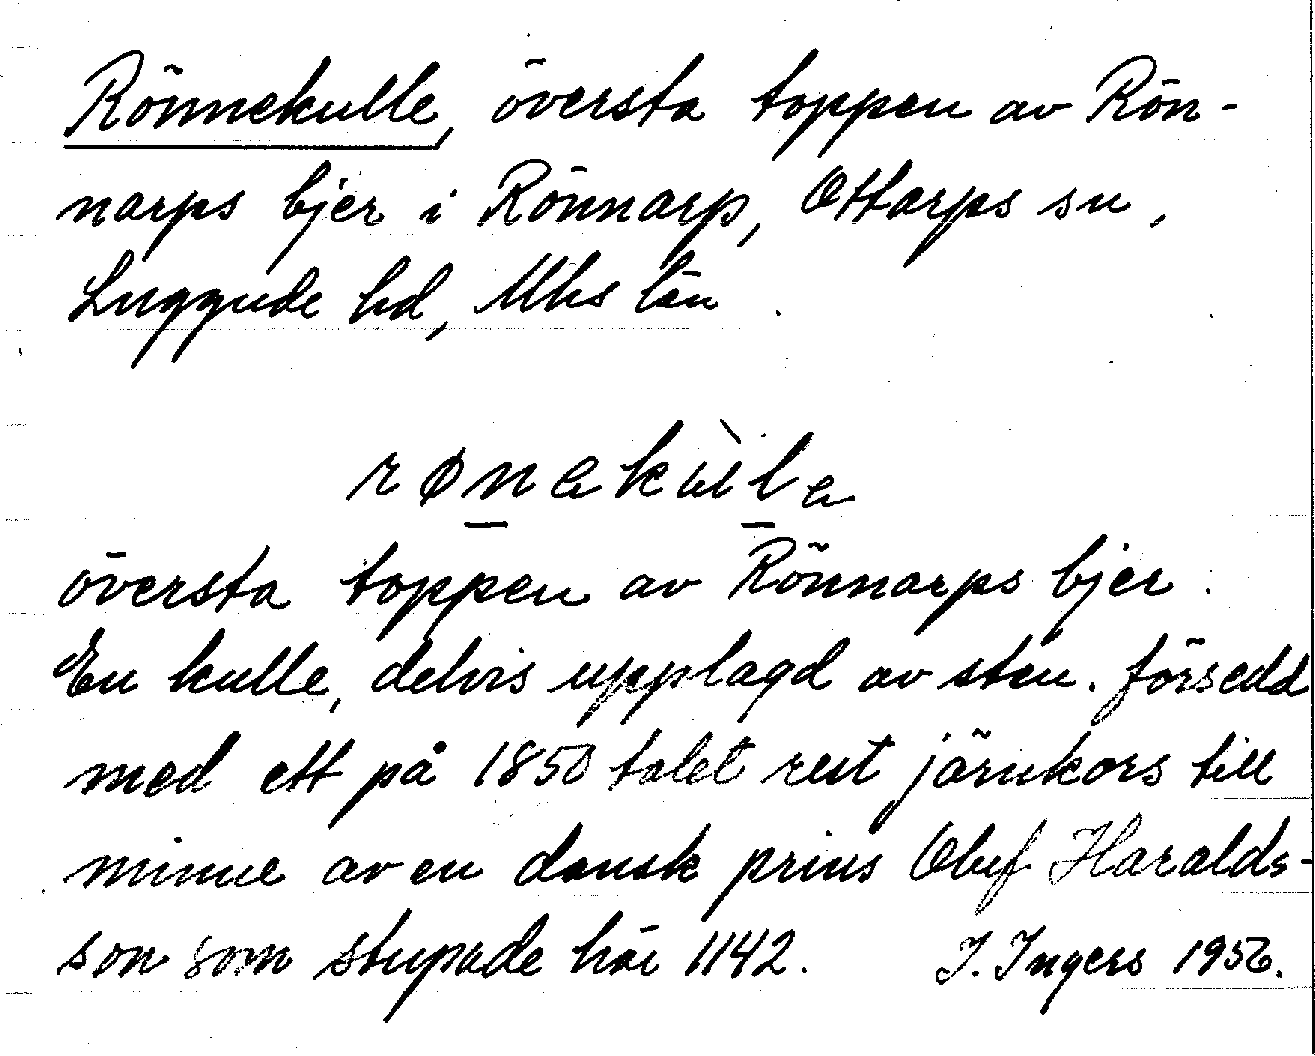 Rönnekulle, översta toppen av Rön-
narps bjer i Rönnarp, Ottarps sn,
Luggude hd, Mhs län.
översta toppen av Rönnarps bjer.
En kulle, delvis upplagd av sten. försedd
med ett på 1850 talet rest järnkors till
minne av en dansk prins Oluf Haralds-
son som stupade här 1142. I. Ingers 1956.